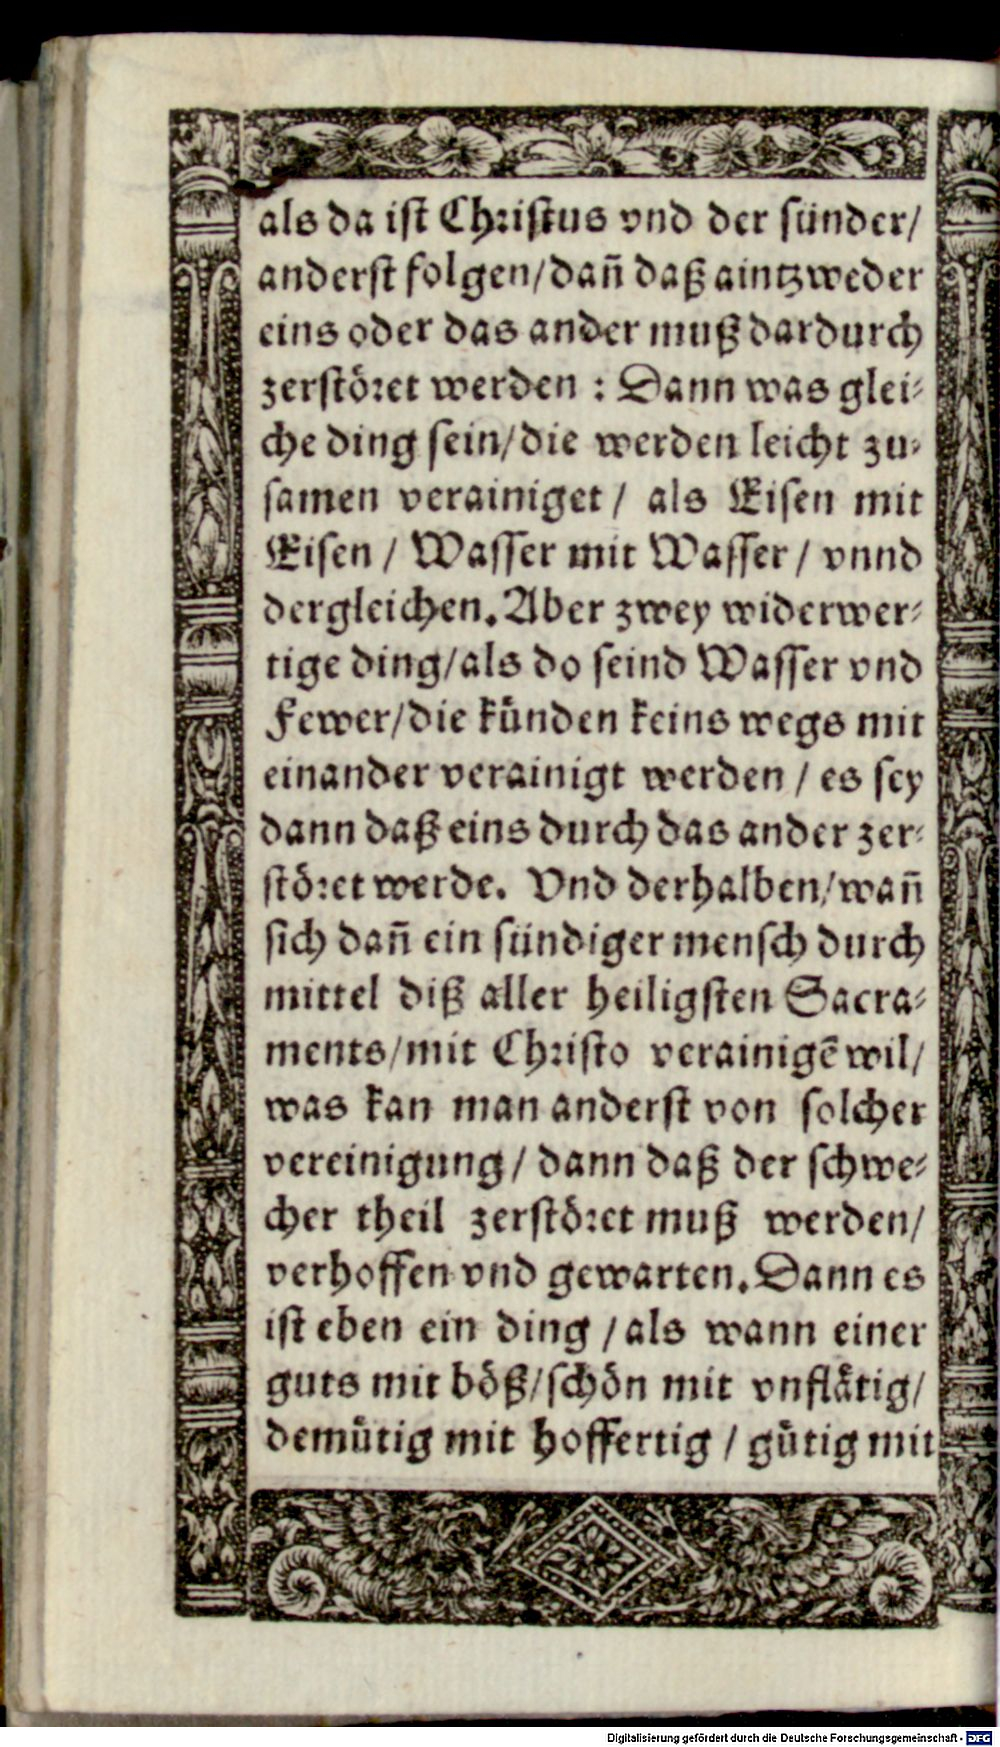 als da iſt Chꝛiſtus vnd der ſünder/
anderſt folgen/dañ daß aintzweder
eins oder das ander muß dardurch
zerſtöꝛet werden : Dann was glei⸗
che ding ſein/die werden leicht zu⸗
ſamen verainiget/ als Eiſen mit
Eiſen / Waſſer mit Waſſer / vnnd
dergleichen. Aber zwey widerwer⸗
tige ding/als do ſeind Waſſer vnd
Fewer/die kuͤnden keins wegs mit
einander verainigt werden / es ſey
dann daß eins durch das ander zer⸗
ſtöꝛet werde. Vnd derhalben/wañ
ſich dañ ein ſündiger menſch durch
mittel diß aller heiligſten Sacra⸗
ments/mit Chꝛiſto verainigẽ wil/
was kan man anderſt von ſolcher
vereinigung/ dann daß der ſchwe⸗
cher theil zerſtöꝛet muß werden/
verhoffen vnd gewarten. Dann es
iſt eben ein ding /als wann einer
guts mit böß/ſchön mit vnflaͤtig/
demuͤtig mit hoffertig / guͤtig mit
Digitalisierung gefördert durch die Deutsche Forschungsgemeinschaft - DFG